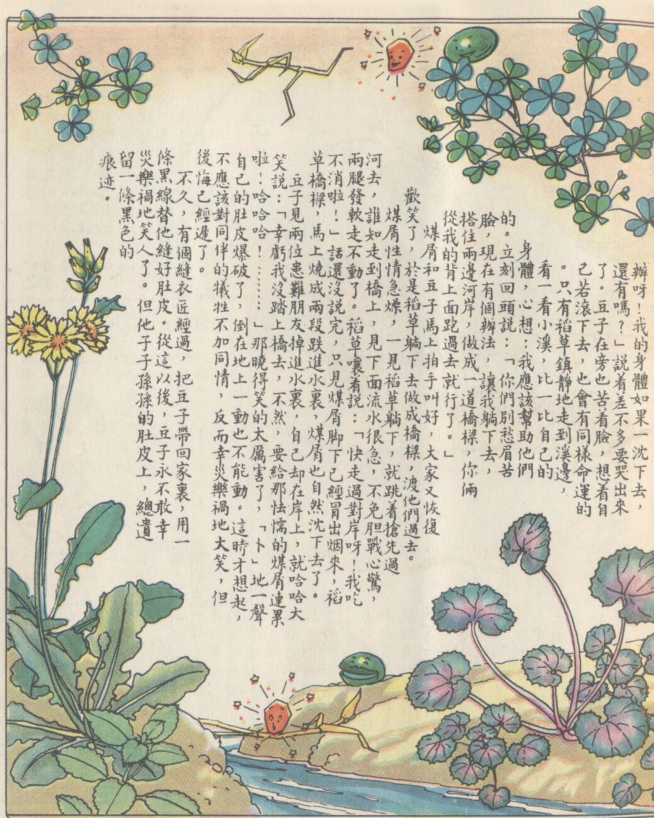 辦呀！我的身體如果一沈下去，
還有嗎？」說着差不多要哭出來
了。豆子在旁也苦着臉，想着自
己若滾下去，也會有同樣命運的
。只有稻草鎮靜地走到溪邊，
看一看小溪，比一比自己的
身體，心想：我應該幫助他們
的。立刻回頭說：「你們別愁眉苦
臉，現在有個辦法，讓我躺下去，
搭住兩邊河岸，做成一道橋樑，你倆
從我的背上面跑過去就行了。」
煤屑和豆子馬上拍手叫好，大家又恢復
歡笑了，於是稻草躺下去做成橋樑，渡他們過去。
煤屑性情急燥，一見稻草躺下，就跳着搶先過
河去，誰知走到橋上，見下面流水很急，不免胆戰心驚，
兩腿發軟走不動了。稻草嚷着說：「快走過對岸呀！我吃
不消啦！」話還沒說完，只見煤屑脚下已經冒出烟來，稻
草橋樑，馬上燒成兩段跌進水裏，煤屑也自然沈下去了。
豆子見兩位患難朋友掉進水裏，自己却在岸上，就哈哈大
笑說：「幸虧我沒踏上橋去，不然，要給那怯懦的煤屑連累
啦！哈哈哈！……」那曉得笑的太厲害了，「卜」地一聲
自己的肚皮爆破了，倒在地上一動也不能動。這時才想起，
不應該對同伴的犧牲不加同情，反而幸災樂禍地大笑，但
後悔已經遲了。
不久，有個縫衣匠經過，把豆子帶回家裏，用一
條黑線替他縫好肚皮。從這以後，豆子永不敢幸
災樂禍地笑人了。但他子子孫孫的肚皮上，總遺
留一條黑色的
痕迹。